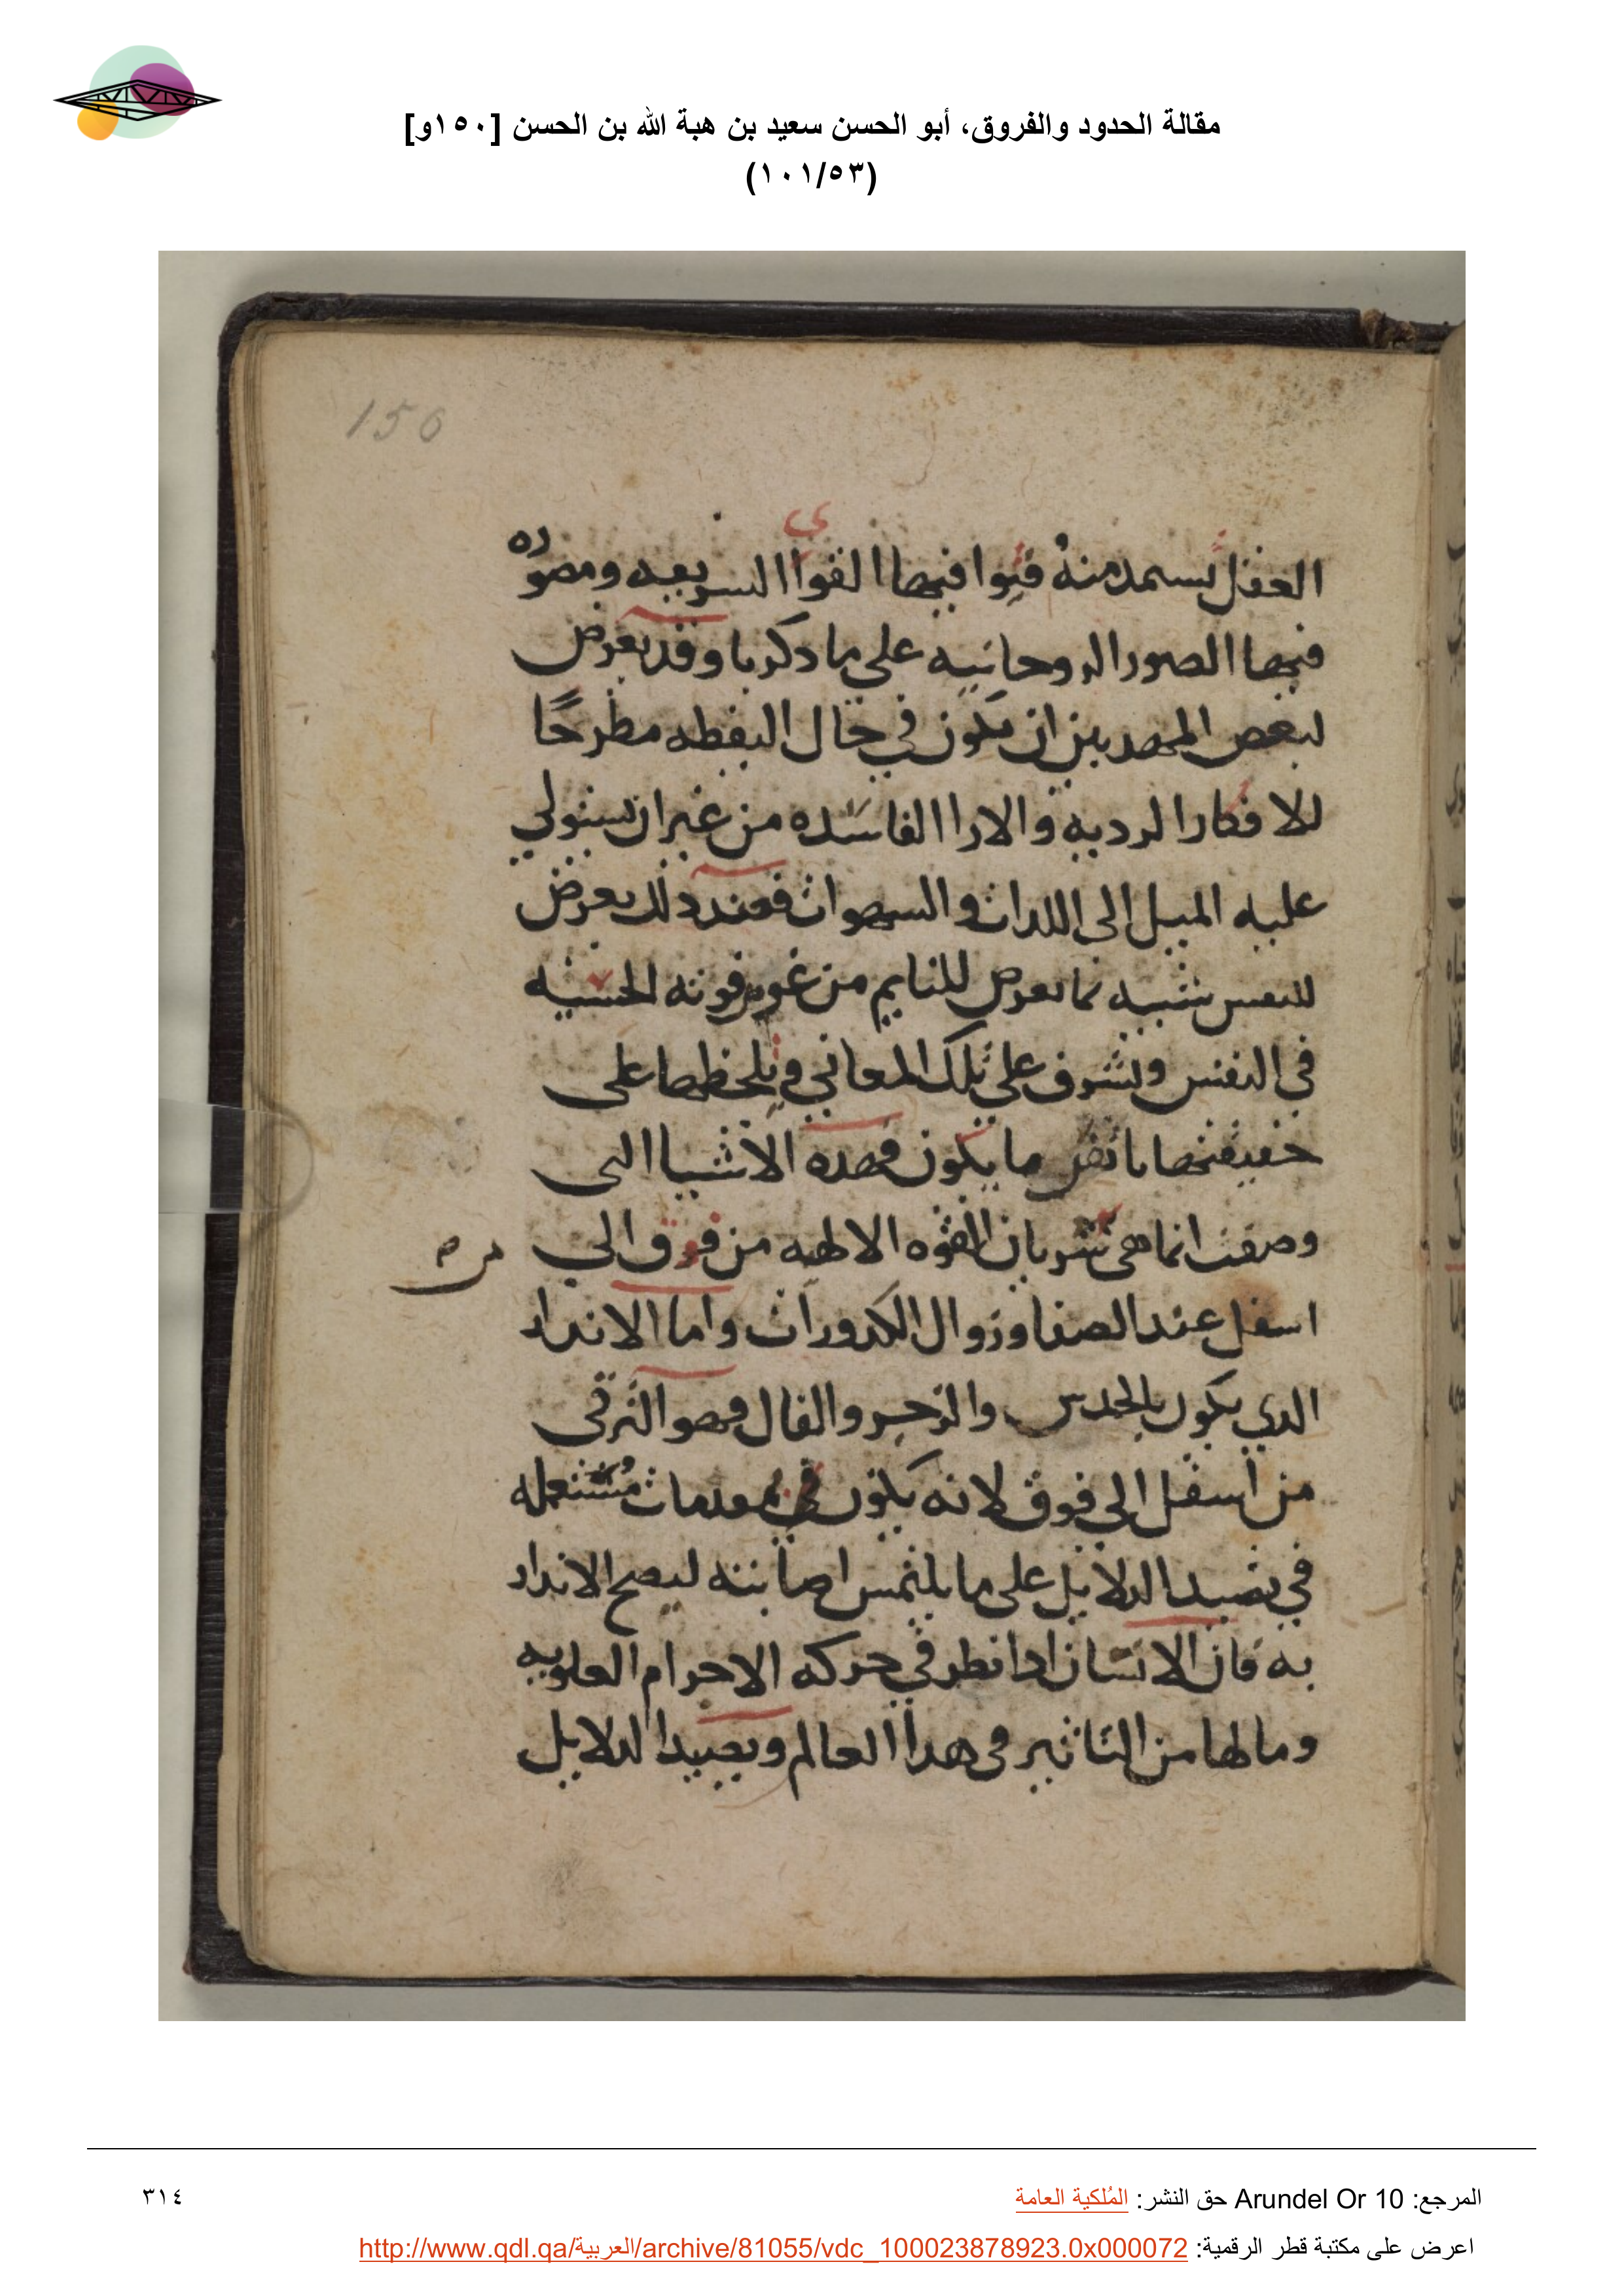 مقالة الحدود والفروق، أبو الحسن سعيد بن هبة الله بن الحسن [١٥٠و]
(١٠١/٥٣)
150
العقل يستمد منهُ فيوا فيها القوا السريعه ومصوره
فيها الصور الروحانيه على ما دكرنا وقد يعرض
لبعض المهديين ان يكون في حال اليقظه مطرحًا
للافكار الرديه والارا الفاسده من غير ان تستولي
عليه الميل الى اللدات والسهوات فعند دلك يعرض
للنفس شبيه بما يعرض للنايم من غور قوته الحسيه
في النفس وتشرف على تلك المعاني وتلحظها على
حقيقتها باتقن ما يكون فهده الاشيا التى
وصفت انما هى سريان القوه الالهيه من فوق الي
اسفل عند الصفا وزوال الكدورات واما الاندار
الدي يكون بالحدس والزجر والفال فهو الترقى
من اسفل الي فوق لانه يكون في مقدمات مُستعمله
في تصيد الدلايل على ما يلتمس اصابته ليصح الاندار
به فان الانسان ادا نظر في حركه الاجرام العلويه
وما لها من التاثير فى هدا العالم وتصيد الدلايل
المرجع: Arundel Or 10 حق النشر: المُلكية العامة
٣١٤
اعرض على مكتبة قطر الرقمية: http://www.qdl.qa/العربية/archive/81055/vdc_100023878923.0x000072